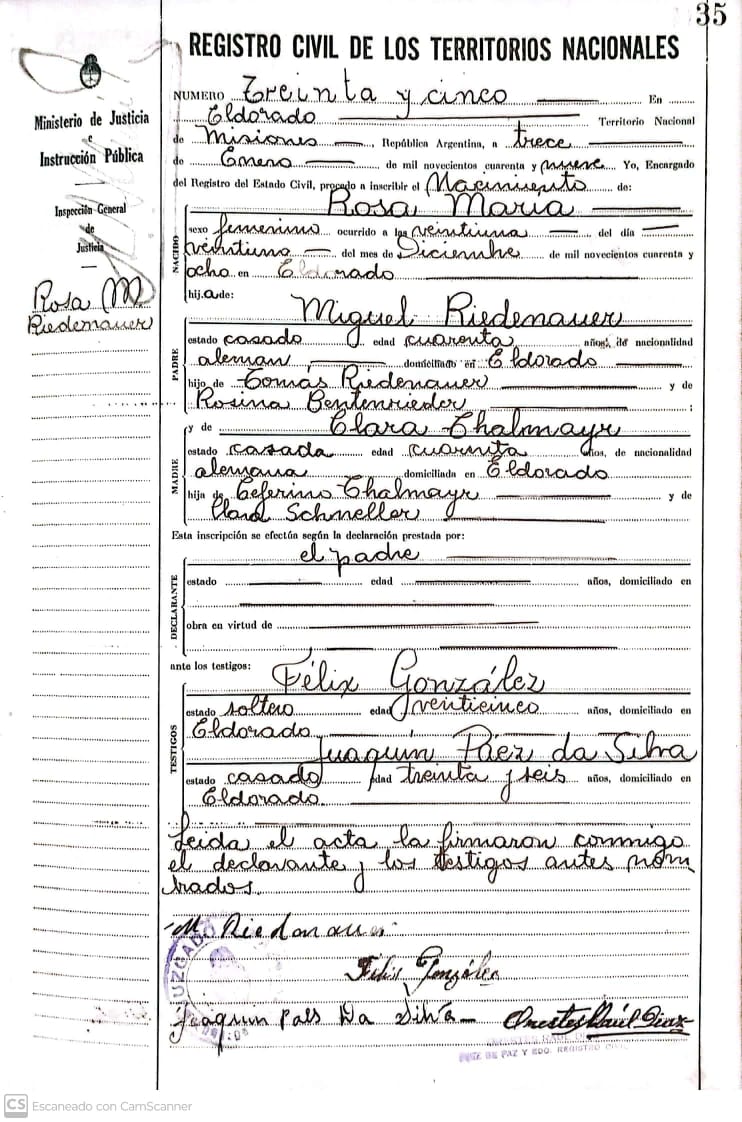 35
REGISTRO CIVIL DE LOS TERRITORIOS NACIONALES
Ministerio de Justicia
e
Instrucción Pública
Inspección General
de
Justicia
Rosa M
Riedenauer
NUMERO Treinta y cinco En
Eldorado Territorio Nacional
de Misiones, República Argentina, a trece
de Enero de mil novecientos cuarenta y nueve Yo, Encargado
del Registro del Estado Civil, procedo a inscribir el Nacimiento de:
NACIDO
Rosa Maria
sexo femenino ocurrido a las veintiuna del día
veintiuno del mes de Diciembre de mil novecientos cuarenta y
ocho en Eldorado
hij.a de:
PADRE
Miguel Riedenauer
estado casado edad cuarenta años, de nacionalidad
alemán domiciliado en Eldorado
hijo de Tomás Riedenauer y de
Rosina Bentenrieder ;
MADRE
y de Clara Thalmayr
estado casada edad cuarenta años, de nacionalidad
alemana domiciliada en Eldorado
hija de Ceferino Thalmayr y de
Clara Schneller
Esta inscripción se efectúa según la declaración prestada por:
DECLARANTE
el padre
estado edad años, domiciliado en
obra en virtud de
ante los testigos: Félix González
TESTIGOS
estado soltero edad veinticinco años, domiciliado en
Eldorado
Juaquín Páez da Silva
estado casado edad treinta y seis años, domiciliado en
Eldorado.
Leida el acta la firmaron conmigo
el declarante y los testigos antes nom
brados.
M. Riedenauer
Félix González
JUZGADO
Joaquin Paes Da Silva
Orestes Raúl Diaz
JUEZ DE PAZ Y EDO. REGISTRO CIVIL
CS Escaneado con CamScanner